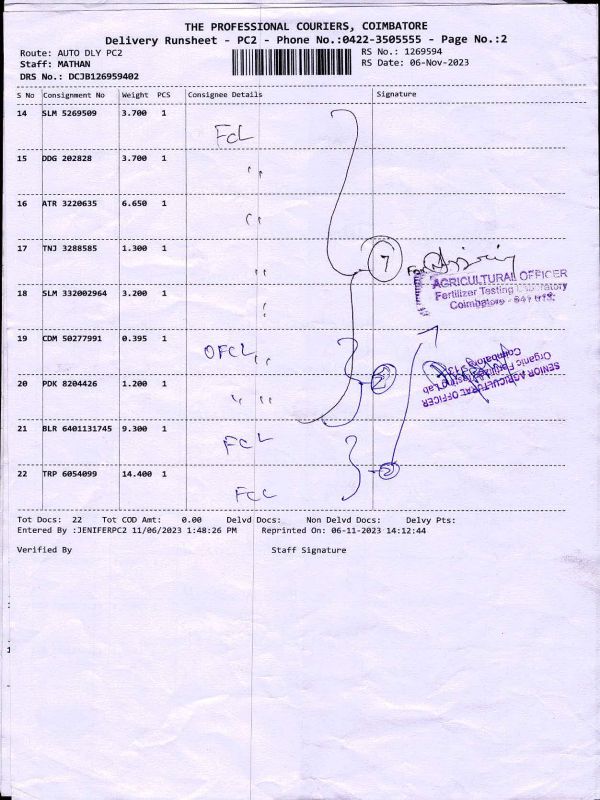 THE PROFESSIONAL COURIERS, COIMBATORE
Delivery Runsheet - PC2 - Phone No.:0422-3505555 - Page No.:2
Route: AUTO DLY PC2 RS No.: 1269594
Staff: MATHAN RS Date: 06-Nov-2023
DRS No.: DCJB126959402
S No Consignment No Weight PCS Consignee Details Signature
14 SLM 5269509 3.700 1
FCL
15 DDG 202828 3.700 1
"
16 ATR 3220635 6.650 1
"
17 TNJ 3288585 1.300 1
"
7
For
AGRICULTURAL OFFICER
Fertilizer Testing Laboratory
Coimbatore - 641 013.
18 SLM 332002964 3.200 1
"
19 CDM 50277991 0.395 1
OFCL "
20 PDK 8204426 1.200 1
" "
2
SENIOR AGRICULTURAL OFFICER
Organic Fertilizer Testing Lab
21 BLR 6401131745 9.300 1
FCL
22 TRP 6054099 14.400 1
2
FCL
Tot Docs: 22 Tot COD Amt: 0.00 Delvd Docs: Non Delvd Docs: Delvy Pts:
Entered By :JENIFERPC2 11/06/2023 1:48:26 PM Reprinted On: 06-11-2023 14:12:44
Verified By Staff Signature